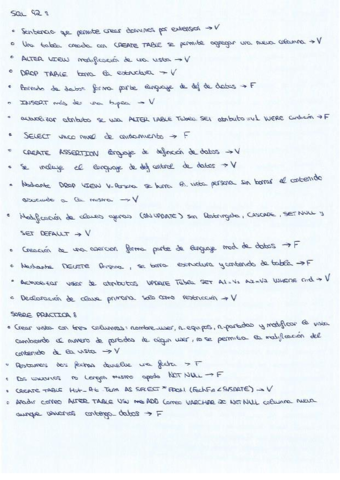 SQL 92:
• Sentencia que permite crear dominios por extensión → V
• Una tabla creada con CREATE TABLE se permite agregar una nueva columna → V
• ALTER VIEW modificación de una vista → V
• DROP TABLE borra la estructura → V
• de datos forma parte lenguaje de def de datos → F
• INSERT más de una tupla → V
• atributo se usa ALTER TABLE SET atributo WHERE → F
• SELECT único nivel de → F
• CREATE ASSERTION lenguaje de definición de datos → V
• Se incluye el lenguaje de control de datos → V
• Mediante DROP VIEW V.Persona se borra la vista persona sin borrar el contenido
asociado a la misma → V
• Modificación de claves ajenas (ON UPDATE) son Restringido, CASCADE, SET NULL y
SET DEFAULT → V
• Creación de una forma parte de lenguaje mod de datos → F
• Mediante DELETE Persona, se borra estructura y contenido de tabla → F
• Actualizar valor de atributos UPDATE Tabla SET A1=V1, A2=V2 WHERE cond → V
• Declaración de clave primaria solo como restricción → V
SOBRE PRACTICA:
• Crear vista con tres columnas: nombre_user, n_equipos, n_partidos y modificar la vista
cambiando el numero de partidos de algun user, no se permitía la modificación del
contenido de la vista → V
• Restamos dos fechas devuelve una fecha → F
• Los usuarios no tengan mismo apodo NOT NULL → F
• CREATE TABLE AS SELECT * FROM → V
• Añadir correo ALTER TABLE ADD Correo VARCHAR NOT NULL columna nueva
aunque usuarios contenga datos → F